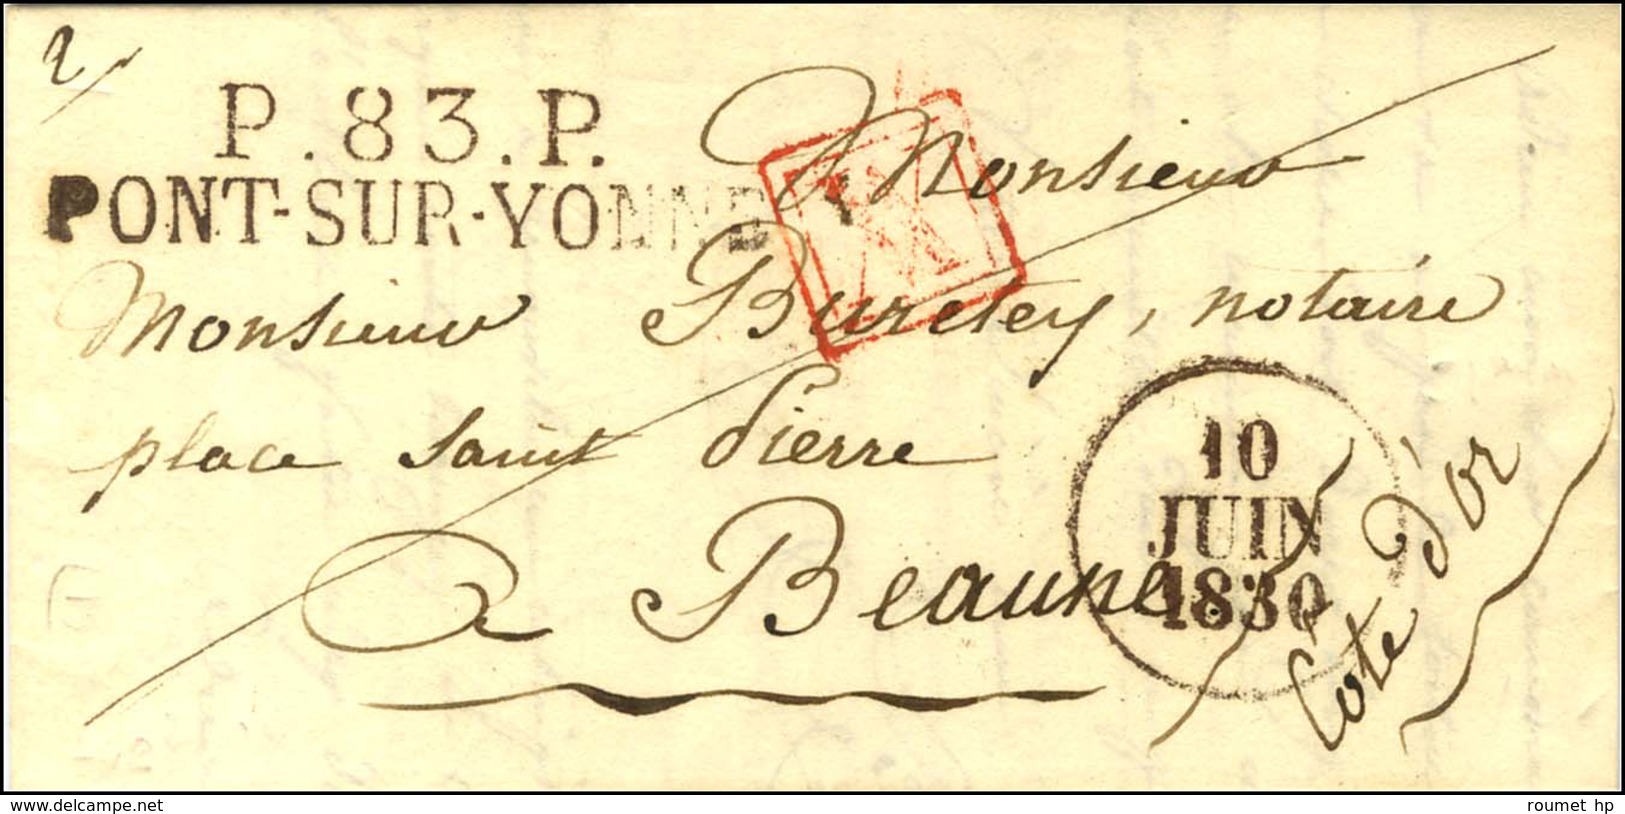 P.83.P.
PONT-SUR-YONNE
Monsieur
Monsieur Buretey, notaire
place saint Pierre
a Beaune
Côte d'or
10
JUIN
1830
www.delcampe.net
roumet hp